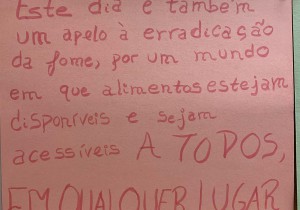 Este dia é também
um apelo à erradicação
da fome, por um mundo
em que alimentos estejam
disponíveis e sejam
acessíveis A TODOS,
EM QUALQUER LUGAR